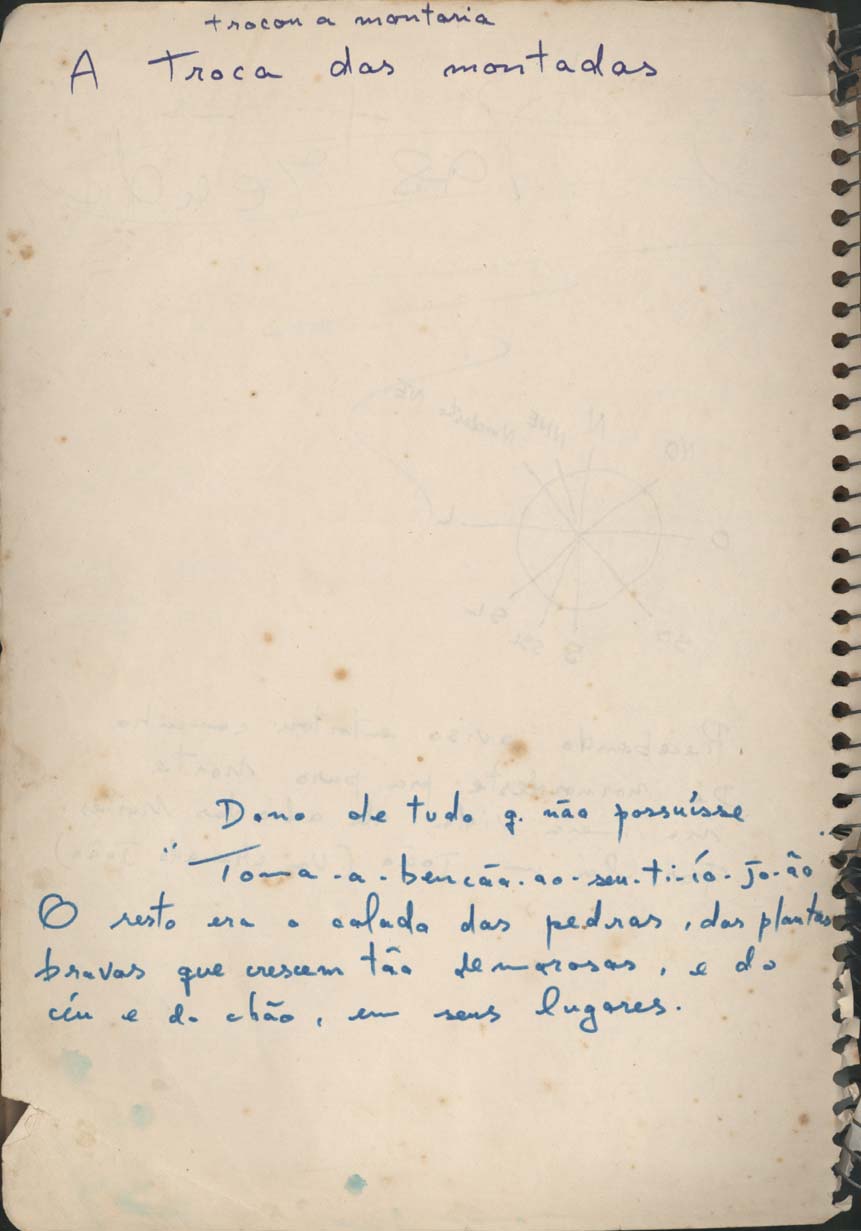 trocou a montaria
A Troca das montadas
Dono de tudo q. não possuísse
"Toma-a-benção-ao-seu-ti-ío-Jo-ão"
O resto era o calado das pedras, das plantas
bravas que crescem tão demorosas, e do
céu e do chão, em seus lugares.